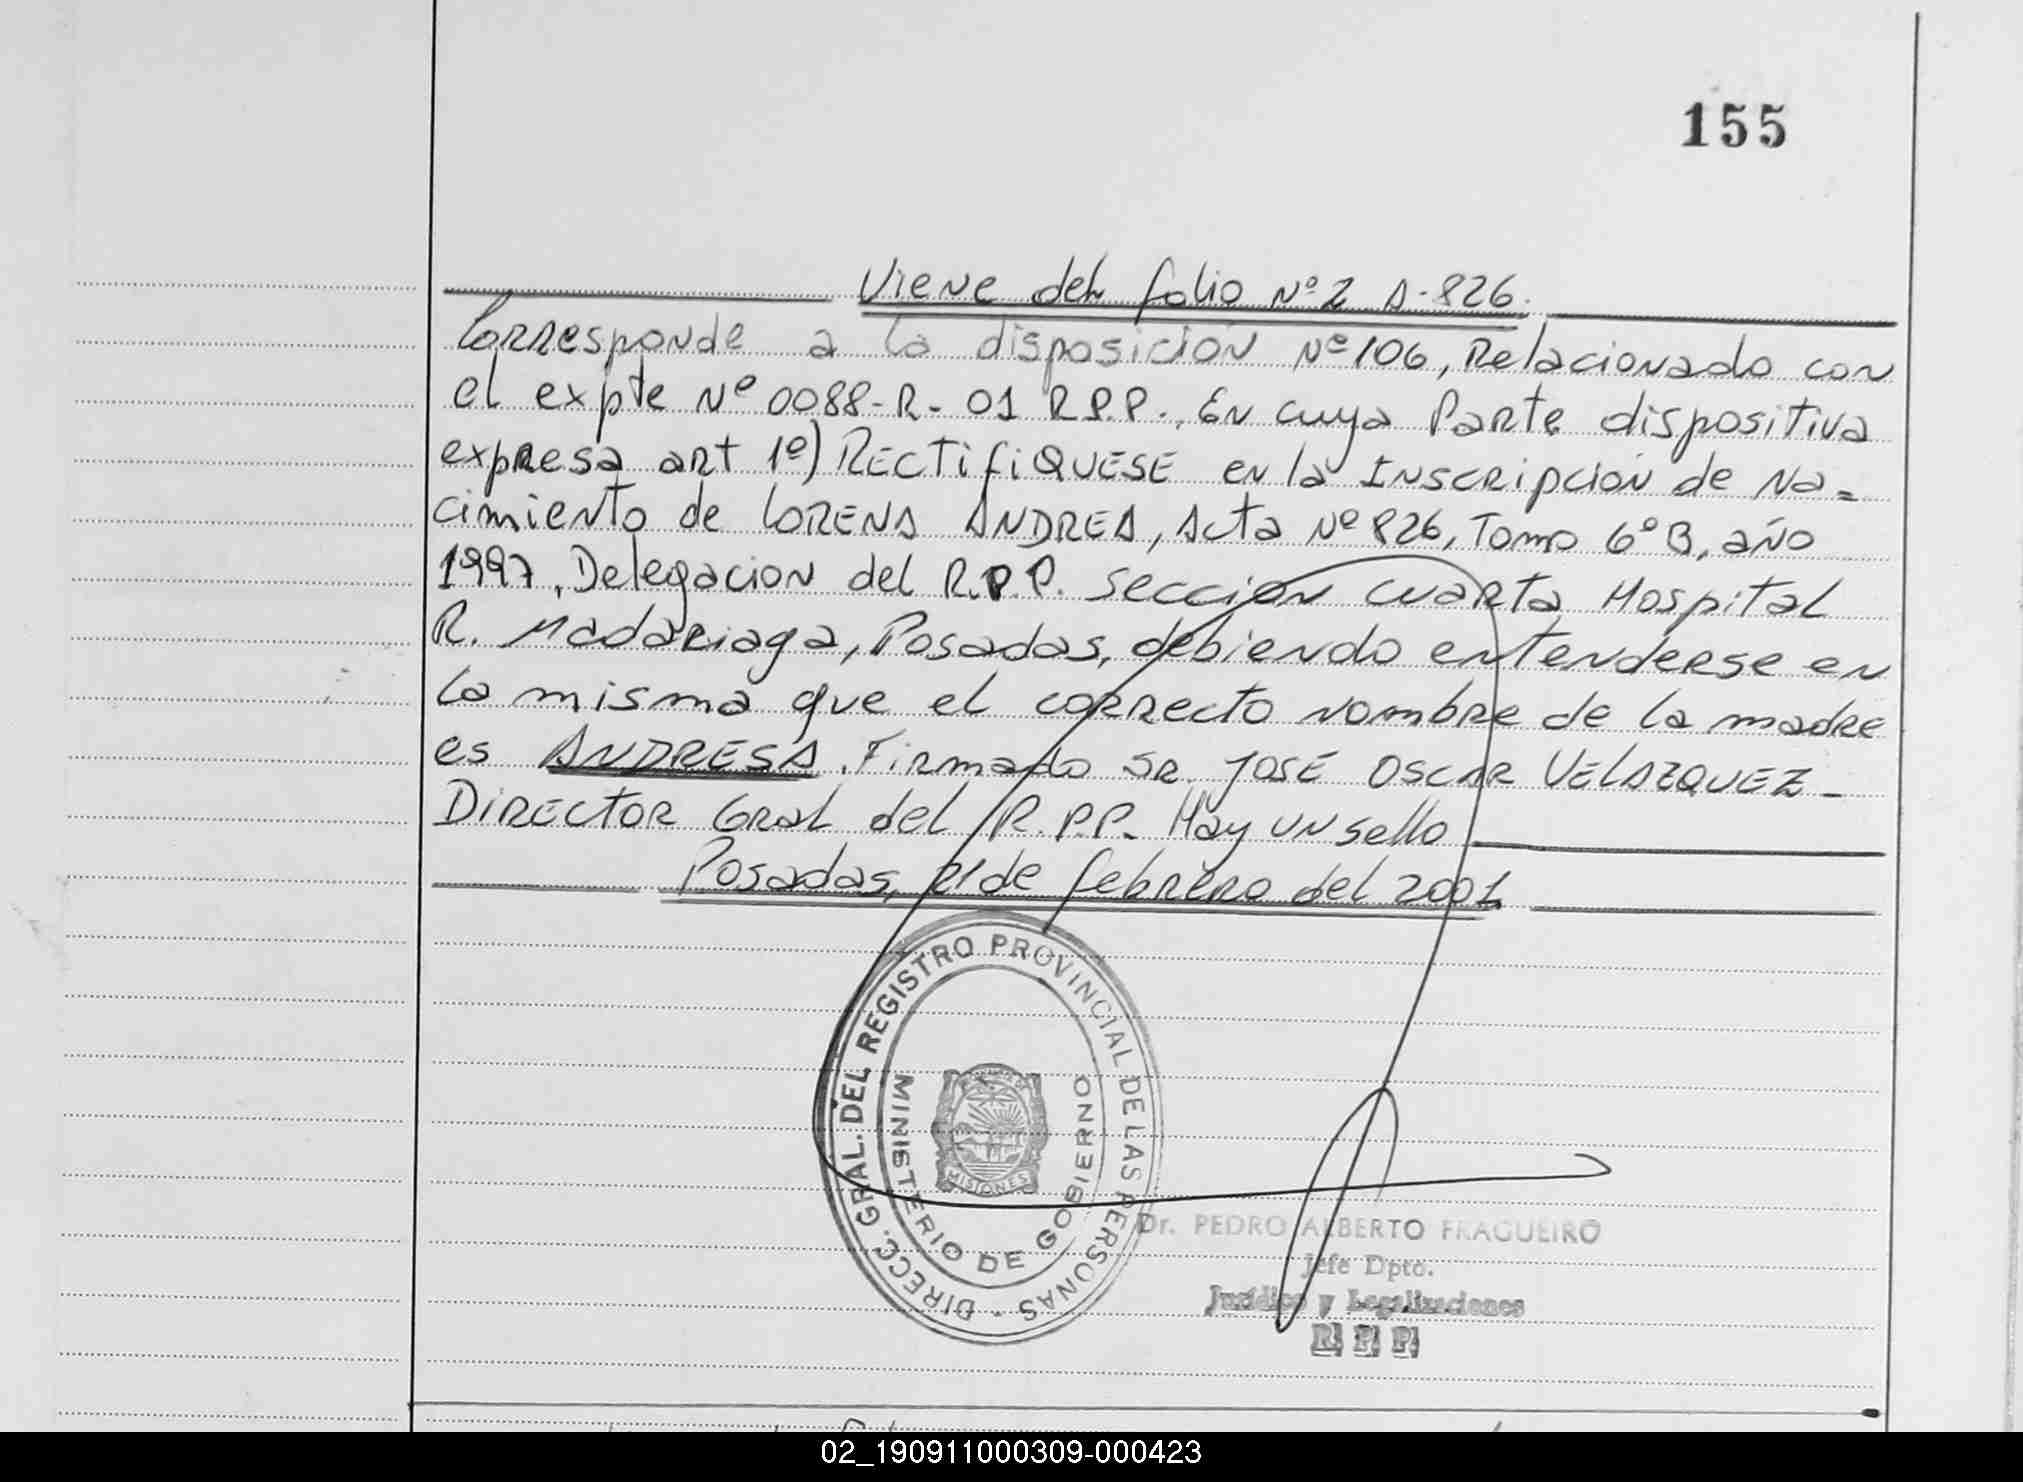 155
Viene del folio Nº 2 A-826.
Corresponde a la disposición Nº 106, Relacionado con
el expte Nº 0088-R-01 R.P.P. En cuya Parte dispositiva
expresa art 1º) RECTIFIQUESE en la Inscripción de Na=
cimiento de LORENA ANDREA, Acta Nº 826, Tomo 6º B, año
1997, Delegacion del R.P.P. Sección Cuarta Hospital
R. Madariaga, Posadas, debiendo entenderse en
la misma que el correcto nombre de la madre
es ANDRESA. Firmado Sr. JOSÉ OSCAR VELAZQUEZ-
DIRECTOR Gral del R.P.P. Hay un sello
Posadas, 21 de febrero del 2001
DIRECC. GRAL. DEL REGISTRO PROVINCIAL DE LAS PERSONAS -
MINISTERIO DE GOBIERNO
MISIONES
Dr. PEDRO ALBERTO FRAGUEIRO
Jefe Dpto.
Jurídico y Legalizaciones
R. P. P.
02_190911000309-000423